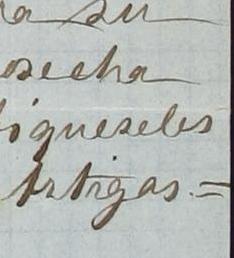 ra su
osecha
íqueseles
Artigas.=